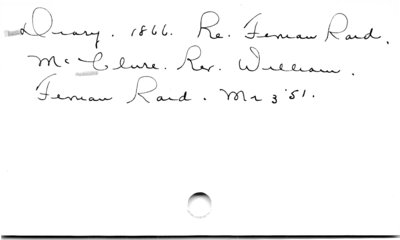 Diary. 1866. Re. Fenian Raid.
McClure. Rev. William.
Fenian Raid. Mr 3 '51.